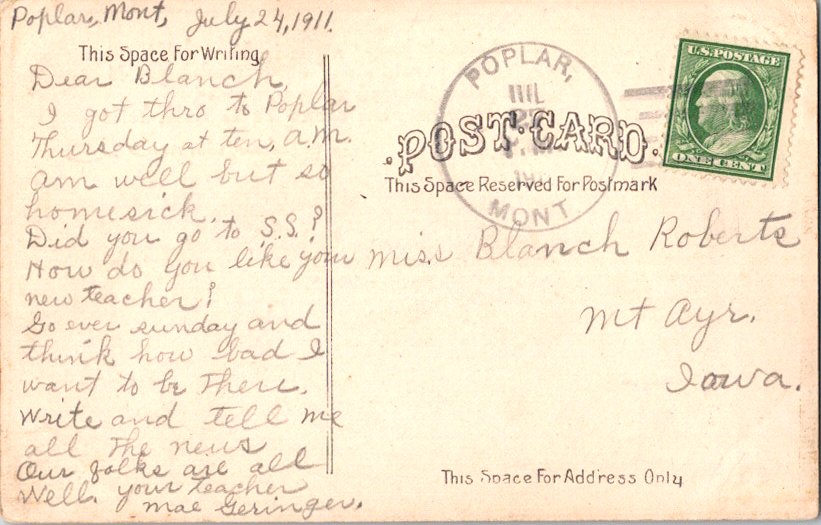 Poplar, Mont, July 24, 1911.
This Space For Writing
Dear Blanch,
I got thro to Poplar
Thursday at ten, a.m.
am well but so
homesick.
Did you go to S.S.?
How do you like your
new teacher?
Go ever sunday and
think how bad I
want to be there.
Write and tell me
all the news
Our folks are all
Well. your teacher
Mae Geringer.
POPLAR,
JUL
MONT
U.S. POSTAGE
ONE CENT
POST CARD.
This Space Reserved For Postmark
Miss Blanch Roberts
Mt Ayr.
Iowa.
This Space For Address Only